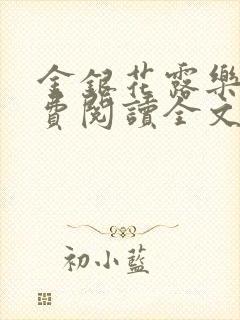 金銀花露樂
費閱讀全文
初小藍